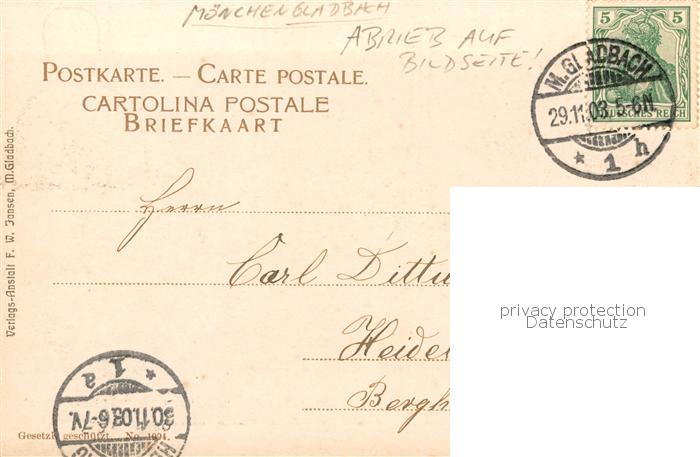 MÖNCHENGLADBACH
ABRIEB AUF
BILDSEITE!
5 5
DEUTSCHES REICH
M. GLADBACH
29.11.03. 5-6N.
* 1 h
POSTKARTE. — CARTE POSTALE.
CARTOLINA POSTALE
BRIEFKAART
Verlags-Anstalt F. W. Jansen, M.Gladbach.
Herrn
Carl
privacy protection
Datenschutz
* 1 a
30.11.03. 6-7V.
Gesetzl. geschützt. No. 1694.